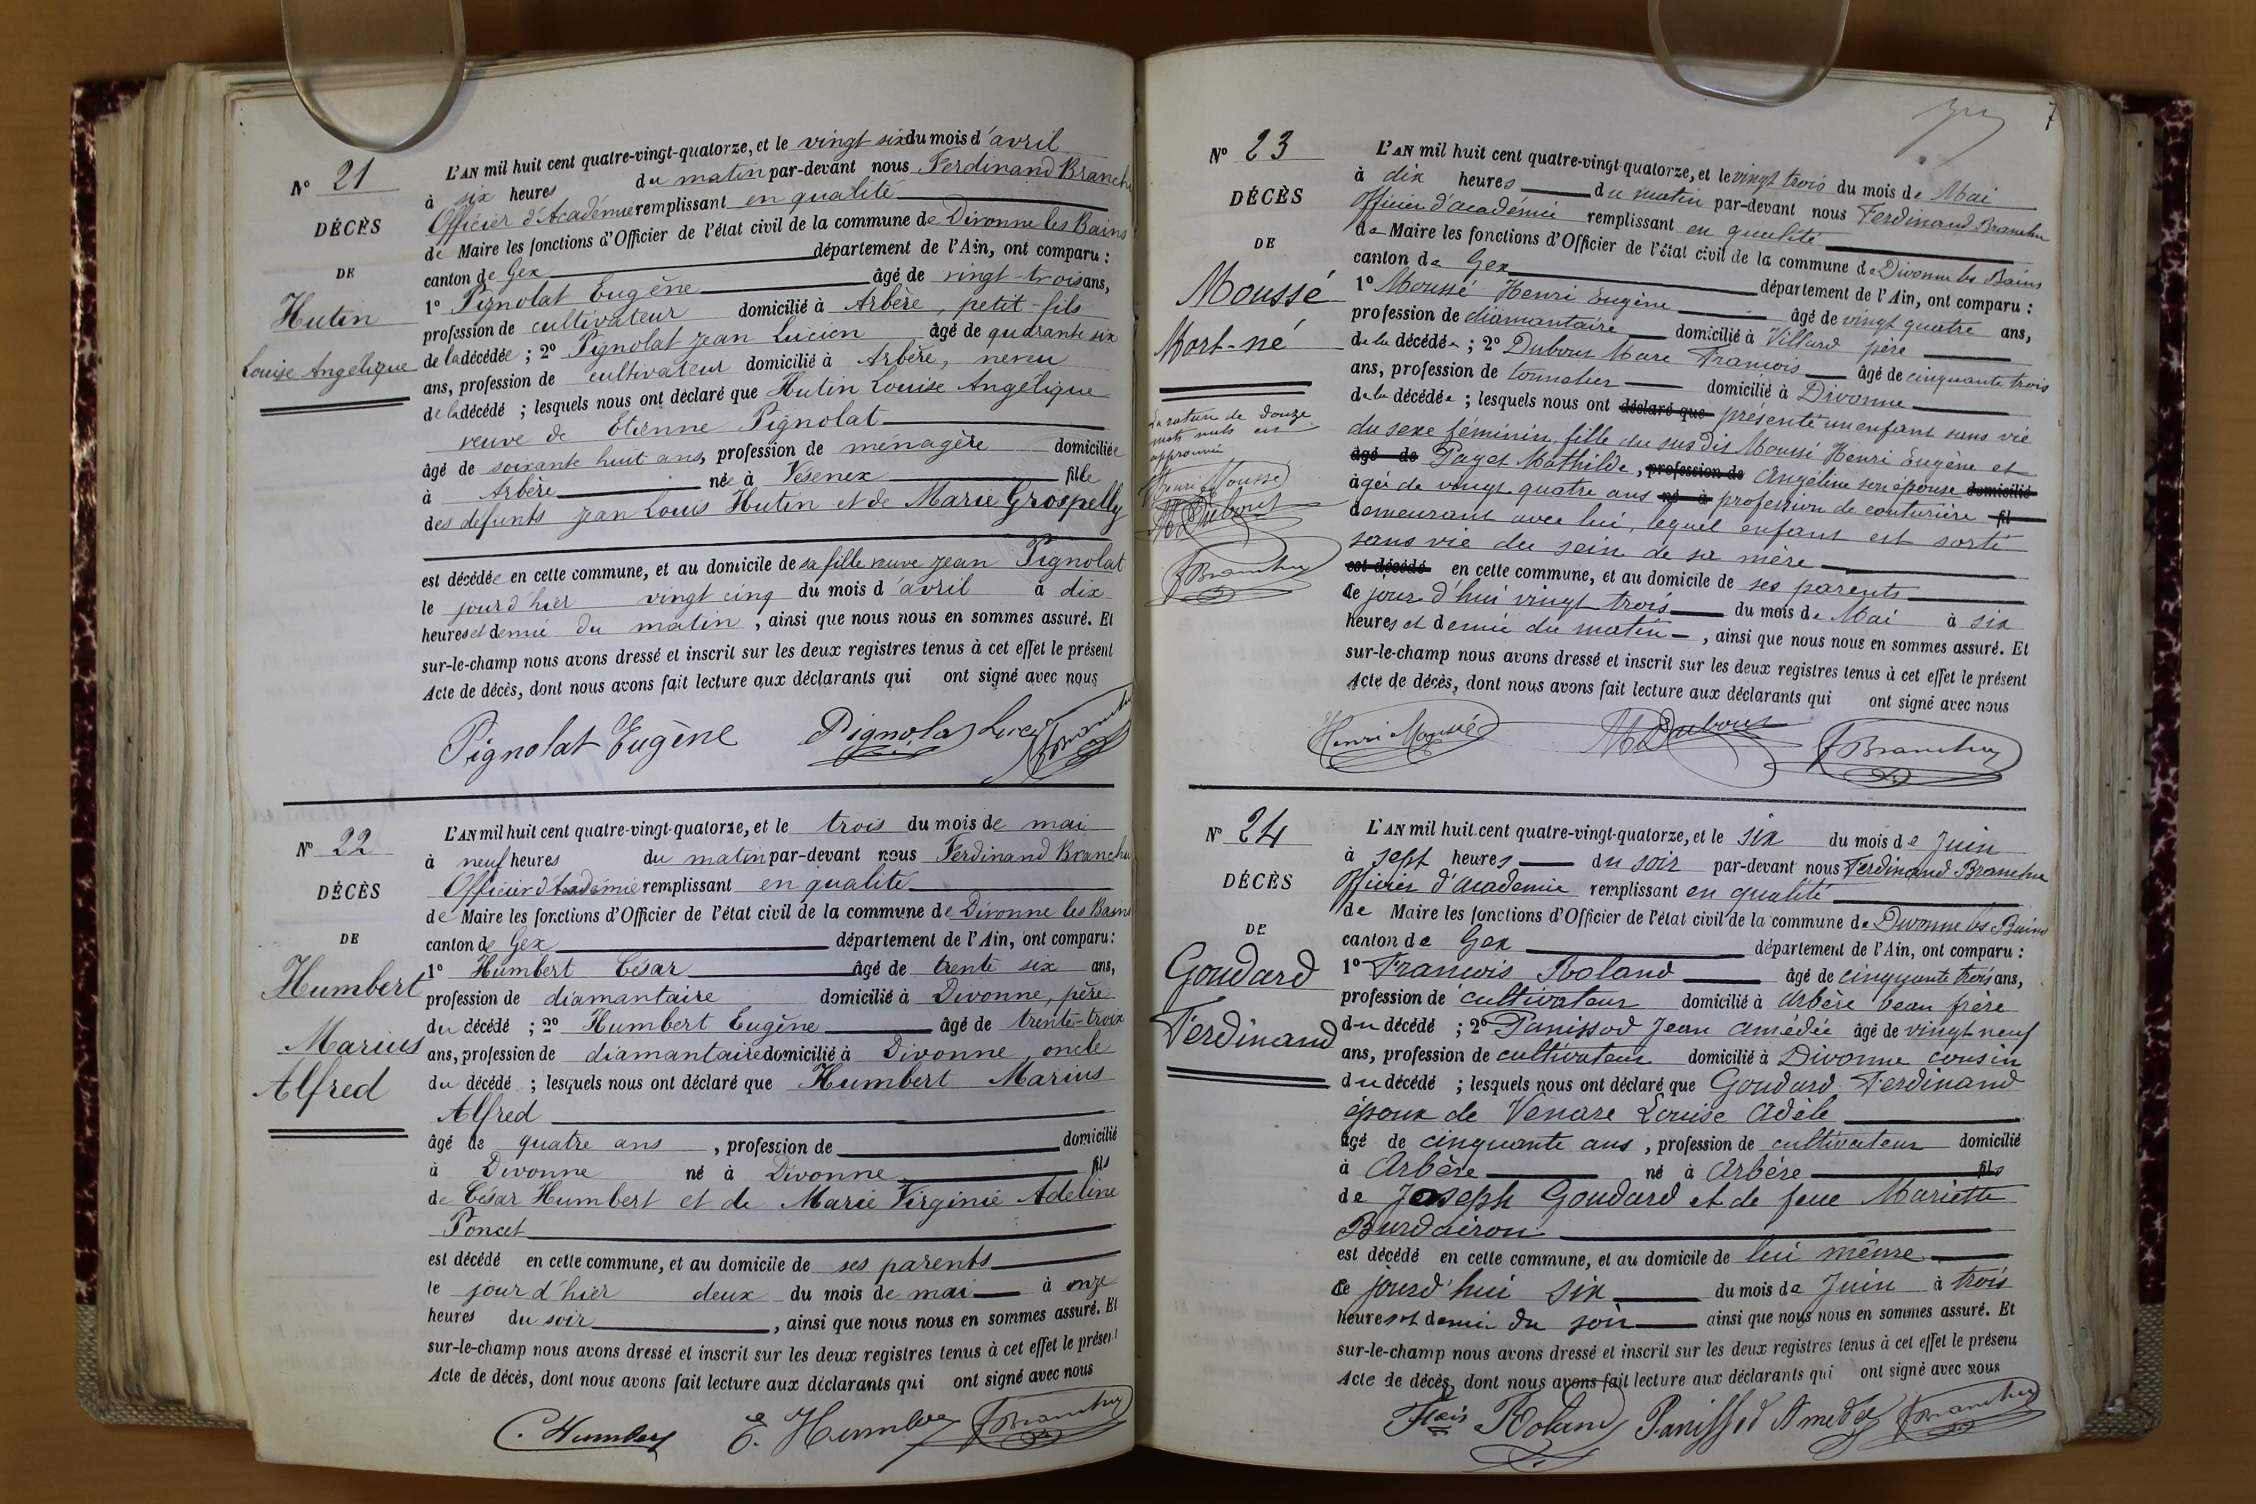 N° 21
DÉCÈS
DE
Hutin
Louise Angélique
L'AN mil huit cent quatre-vingt-quatorze, et le vingt six du mois d'avril
à six heures du matin par-devant nous Ferdinand Branchu
Officier d'Académie remplissant en qualité
de Maire les fonctions d'Officier de l'état civil de la commune de Divonne les Bains
canton de Gex département de l'Ain, ont comparu :
1° Pignolat Eugène âgé de vingt-trois ans,
profession de cultivateur domicilié à Arbère, petit-fils
de la décédée ; 2° Pignolat Jean Lucien âgé de quarante six
ans, profession de cultivateur domicilié à Arbère, neveu
de la décédé ; lesquels nous ont déclaré que Hutin Louise Angélique
veuve de Etienne Pignolat
âgé de soixante huit ans, profession de ménagère domiciliée
à Arbère née à Vésenex fille
des défunts Jean Louis Hutin et de Marie Grospelly
est décédée en cette commune, et au domicile de sa fille veuve Jean Pignolat
le jour d'hier vingt cinq du mois d'avril à dix
heures et demie du matin, ainsi que nous nous en sommes assuré. Et
sur-le-champ nous avons dressé et inscrit sur les deux registres tenus à cet effet le présent
Acte de décès, dont nous avons fait lecture aux déclarants qui ont signé avec nous
Pignolat Eugène Pignolat Lucien FBranchu
N° 22
DÉCÈS
DE
Humbert
Marius
Alfred
L'AN mil huit cent quatre-vingt-quatorze, et le trois du mois de mai
à neuf heures du matin par-devant nous Ferdinand Branchu
Officier d'Académie remplissant en qualité
de Maire les fonctions d'Officier de l'état civil de la commune de Divonne les Bains
canton de Gex département de l'Ain, ont comparu :
1° Humbert César âgé de trente six ans,
profession de diamantaire domicilié à Divonne, père
du décédé ; 2° Humbert Eugène âgé de trente-trois
ans, profession de diamantaire domicilié à Divonne, oncle
du décédé ; lesquels nous ont déclaré que Humbert Marius
Alfred
âgé de quatre ans, profession de domicilié
à Divonne né à Divonne fils
de César Humbert et de Marie Virginie Adeline
Poncet
est décédé en cette commune, et au domicile de ses parents
le jour d'hier deux du mois de mai à onze
heures du soir, ainsi que nous nous en sommes assuré. Et
sur-le-champ nous avons dressé et inscrit sur les deux registres tenus à cet effet le présent
Acte de décès, dont nous avons fait lecture aux déclarants qui ont signé avec nous
C. Humbert E. Humbert FBranchu
7
N° 23
DÉCÈS
DE
Moussé
Mort-né
La rature de douze
mots nuls est
approuvée
Henri Moussé
M Dubout
FBranchu
L'AN mil huit cent quatre-vingt-quatorze, et le vingt trois du mois de Mai
à dix heures du matin par-devant nous Ferdinand Branchu
Officier d'académie remplissant en qualité
de Maire les fonctions d'Officier de l'état civil de la commune de Divonne les Bains
canton de Gex département de l'Ain, ont comparu :
1° Moussé Henri Eugène âgé de vingt quatre ans,
profession de diamantaire domicilié à Villard père
de la décédée ; 2° Dubout Marc François âgé de cinquante trois
ans, profession de tonnelier domicilié à Divonne
de la décédée ; lesquels nous ont déclaré que présenté un enfant sans vie
du sexe féminin, fille du susdit Moussé Henri Eugène et
âgé de Paget Mathilde, profession de Angéline son épouse domicilié
âgée de vingt quatre ans né à profession de couturière fil
demeurant avec lui, lequel enfant est sorti
sans vie du sein de sa mère
est décédé en cette commune, et au domicile de ses parents
ce jour d'hui vingt trois du mois de Mai à six
heures et demie du matin, ainsi que nous nous en sommes assuré. Et
sur-le-champ nous avons dressé et inscrit sur les deux registres tenus à cet effet le présent
Acte de décès, dont nous avons fait lecture aux déclarants qui ont signé avec nous
Henri Moussé M Dubout FBranchu
N° 24
DÉCÈS
DE
Goudard
Ferdinand
L'AN mil huit cent quatre-vingt-quatorze, et le six du mois de Juin
à sept heures du soir par-devant nous Ferdinand Branchu
Officier d'académie remplissant en qualité
de Maire les fonctions d'Officier de l'état civil de la commune de Divonne les Bains
canton de Gex département de l'Ain, ont comparu :
1° François Roland âgé de cinquante trois ans,
profession de cultivateur domicilié à Arbère beau frère
du décédé ; 2° Panissod Jean Amédée âgé de vingt neuf
ans, profession de cultivateur domicilié à Divonne cousin
du décédé ; lesquels nous ont déclaré que Goudard Ferdinand
époux de Venare Louise Adèle
âgé de cinquante ans, profession de cultivateur domicilié
à Arbère né à Arbère fils
de Joseph Goudard et de feue Mariette
Burdairon
est décédé en cette commune, et au domicile de lui même
ce jourd'hui six du mois de Juin à trois
heures et demie du soir ainsi que nous nous en sommes assuré. Et
sur-le-champ nous avons dressé et inscrit sur les deux registres tenus à cet effet le présent
Acte de décès, dont nous avons fait lecture aux déclarants qui ont signé avec nous
Fçois Roland Panissod Amédée FBranchu